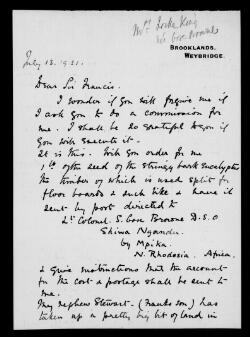 Mrs Locke King
BROOKLANDS,
WEYBRIDGE.
July 13. 1921.
Dear Sir Francis.
I wonder if you will forgive me if
I ask you to do a commission for
me. I shall be so grateful to you if
you will execute it.
It is this. Will you order for me
1 lb of the seed of the stringy bark eucalyptus
the timber of which is used split for
floor boards & such like & have it
sent by post directed to
Lt Colonel. S. Gore Browne D.S.O
Shiwa Ngandu.
by Mpika.
N. Rhodesia. Africa.
& give instructions that the account
for the cost & postage shall be sent to
me.
My nephew Stewart - (Franks son) has
taken up a pretty big bit of land in